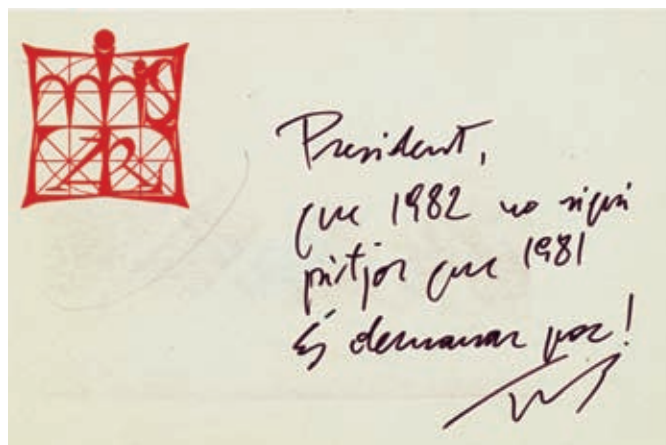 President,
que 1982 no sigui
pitjor que 1981
És demanar poc!